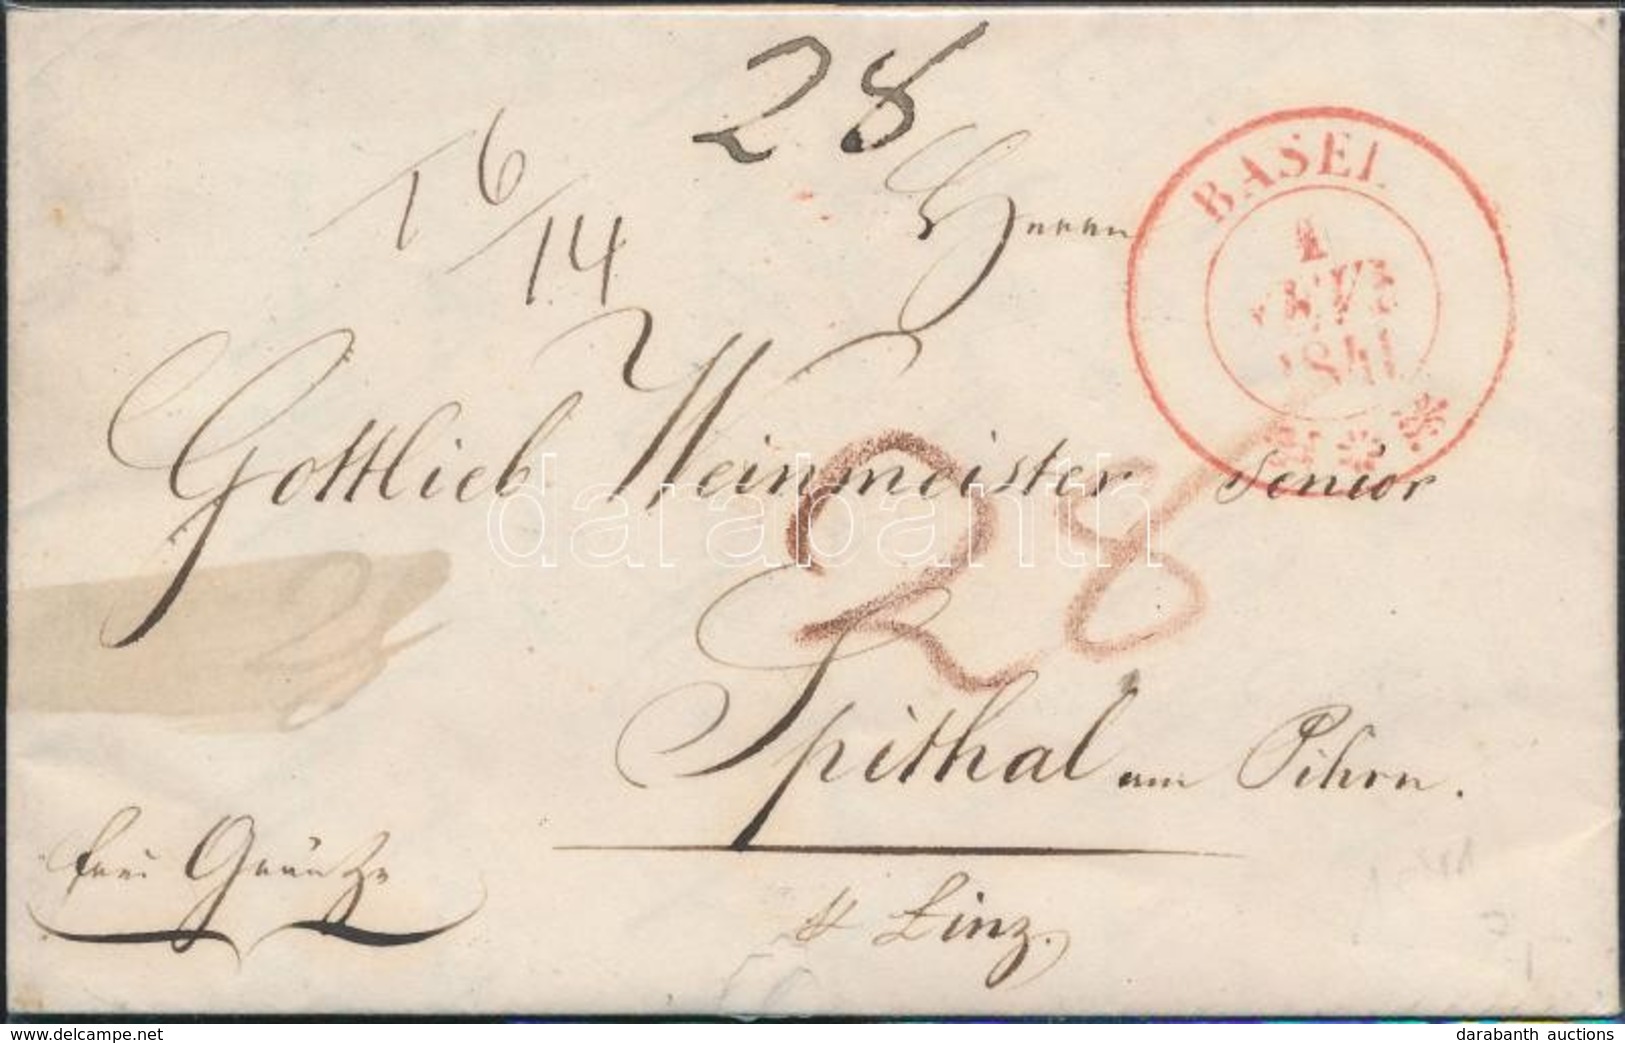 28
16/14
Herrn
BASEL
1
1841
Gottlieb Weinmeister Senior
28
Spithal am Pihrn.
frei Gräntze
Linz.
darabanth
www.delcampe.net
darabanth auctions